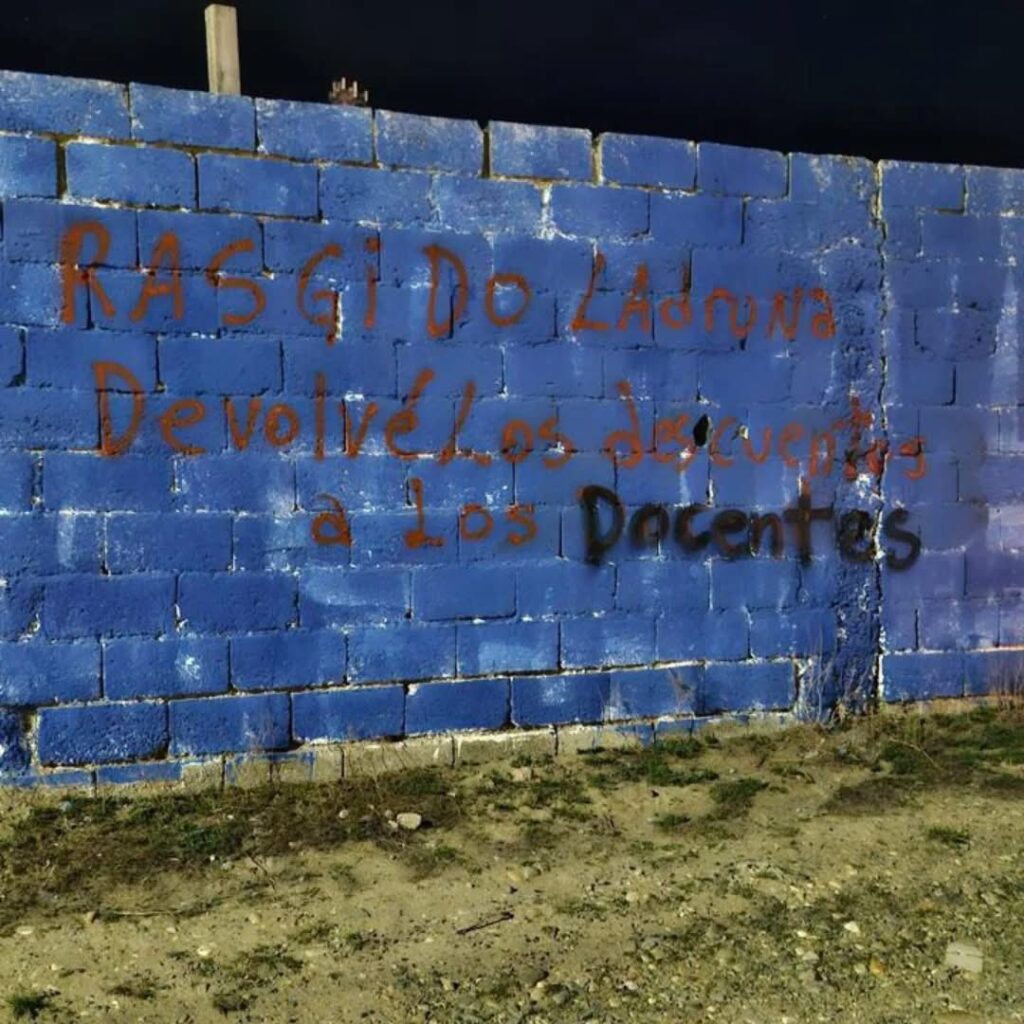 RASGiDo LAdrona
Devolvé Los descuentos
a Los Docentes